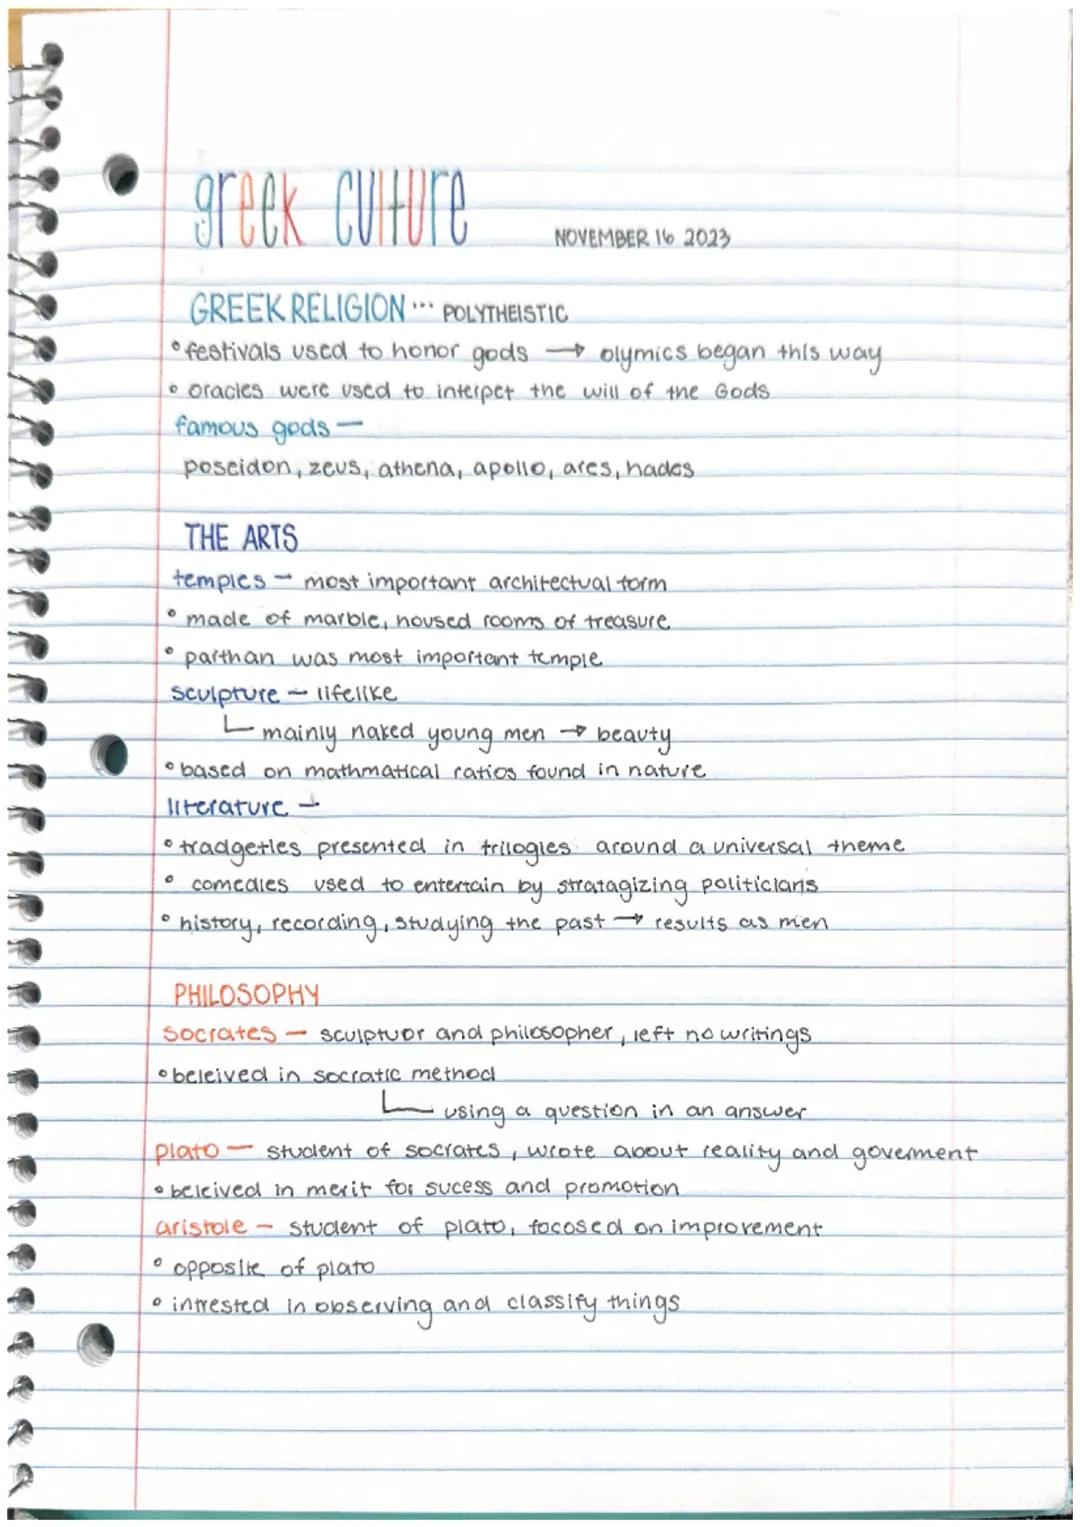 greek culture
NOVEMBER 16 2023
GREEK RELIGION ... POLYTHEISTIC
• festivals used to honor gods → olymics began this way
• oracles were used to interpet the will of the Gods
famous gods —
poseidon, zeus, athena, apollo, ares, hades
THE ARTS
temples — most important architectual form
• made of marble, housed rooms of treasure
• parthan was most important temple
sculpture — lifelike
mainly naked young men → beauty
• based on mathmatical ratios found in nature
literature —
• tradgeties presented in trilogies around a universal theme
• comedies used to entertain by stratagizing politicians
• history, recording, studying the past → results as men
PHILOSOPHY
socrates — sculptuor and philosopher, left no writings
• beleived in socratic method
using a question in an answer
plato — student of socrates, wrote about reality and goverment
• beleived in merit for sucess and promotion
aristole — student of plato, focosed on improvement
• opposite of plato
• intrested in observing and classify things